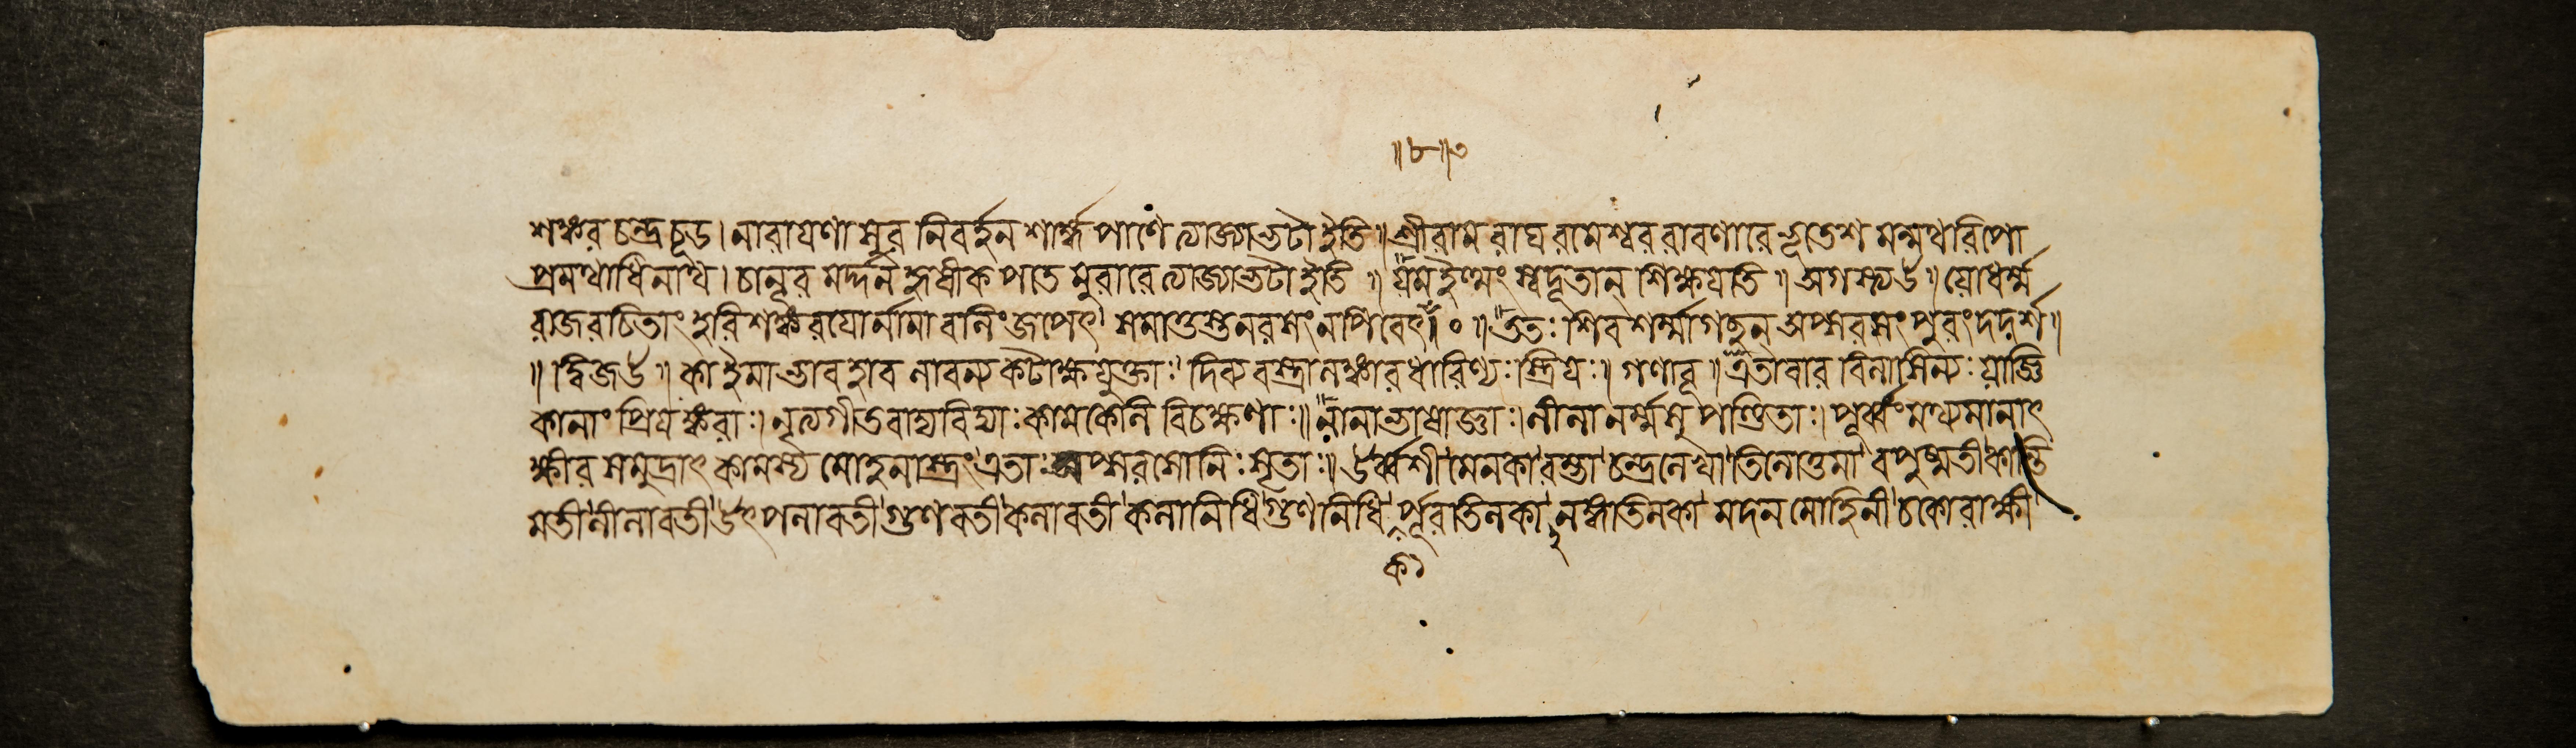 ॥৮॥৩
শঙ্কর চন্দ্রচূড। নারাযণাসুর নিবর্হন শার্ঙ্গপাণে ত্যাজ্যাভটা ইতি॥ শ্রীরাম রাঘ রামেশ্বর রাবণারে ভূতেশ মন্মথরিপো
প্রমথাধিনাথ। চানূর মর্দ্দন হৃষীকপতে মুরারে ত্যাজ্যাভটা ইতি॥ যম ইত্থং স্বদূতান্ শিক্ষযতি॥ অগস্ত্যউ॥ যোধর্ম্ম
রাজরচিতাং হরিশঙ্করযোর্নামাবলিং জপেৎ। সমাতুস্তনরসং ন পিবেৎ॥০॥ ততঃ শিবশর্ম্মাগছন্ অপ্সরসং পুরং দদর্শ॥
॥ দ্বিজউ॥ কা ইমা ভাব হাব লাবন্য কটাক্ষযুক্তাঃ। দিব্য বস্ত্রালঙ্কারধারিণ্যঃ স্ত্রিযঃ॥ গণাবূ॥ এতা বার বিলাসিন্যঃ যাজ্ঞি
কানাং প্রিযঙ্করাঃ। নৃত্যগীতবাদ্যবিদ্যাঃ কামকেলি বিচক্ষণাঃ॥ নানাভাষাজ্ঞাঃ। লীলা নর্ম্মসু পণ্ডিতাঃ। পূর্ব্বং মথ্যমানাৎ
ক্ষীর সমুদ্রাৎ কামস্য মোহনাস্ত্রং এতাঃ অপ্সরসো নিঃসৃতাঃ॥ উর্ব্বশী মেনকা রম্ভা চন্দ্রলেখা তিলোত্তমা বপুষ্মতী কান্তি
মতী লীলাবতী উৎপলাবতী গুণবতী কলাবতী কলানিধি গুণনিধি র্পূরতিলকা নঙ্গতিলকা মদন মোহিনী চকোরাক্ষী
ক১